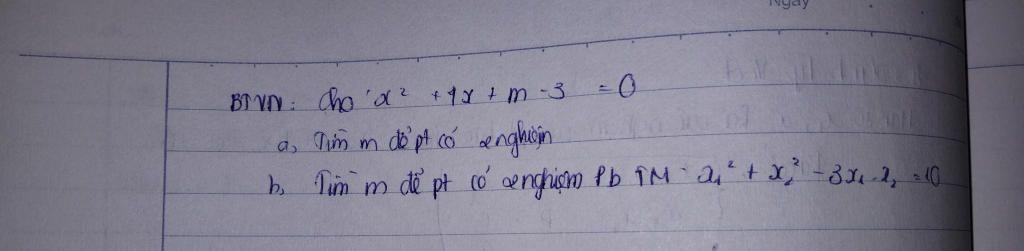 Ngày
BTVN: Cho x² + 4x + m - 3 = 0
a, Tìm m để pt có 2 nghiệm
b, Tìm m để pt có 2 nghiệm Pb TM x₁² + x₂² - 3x₁.x₂ = 10